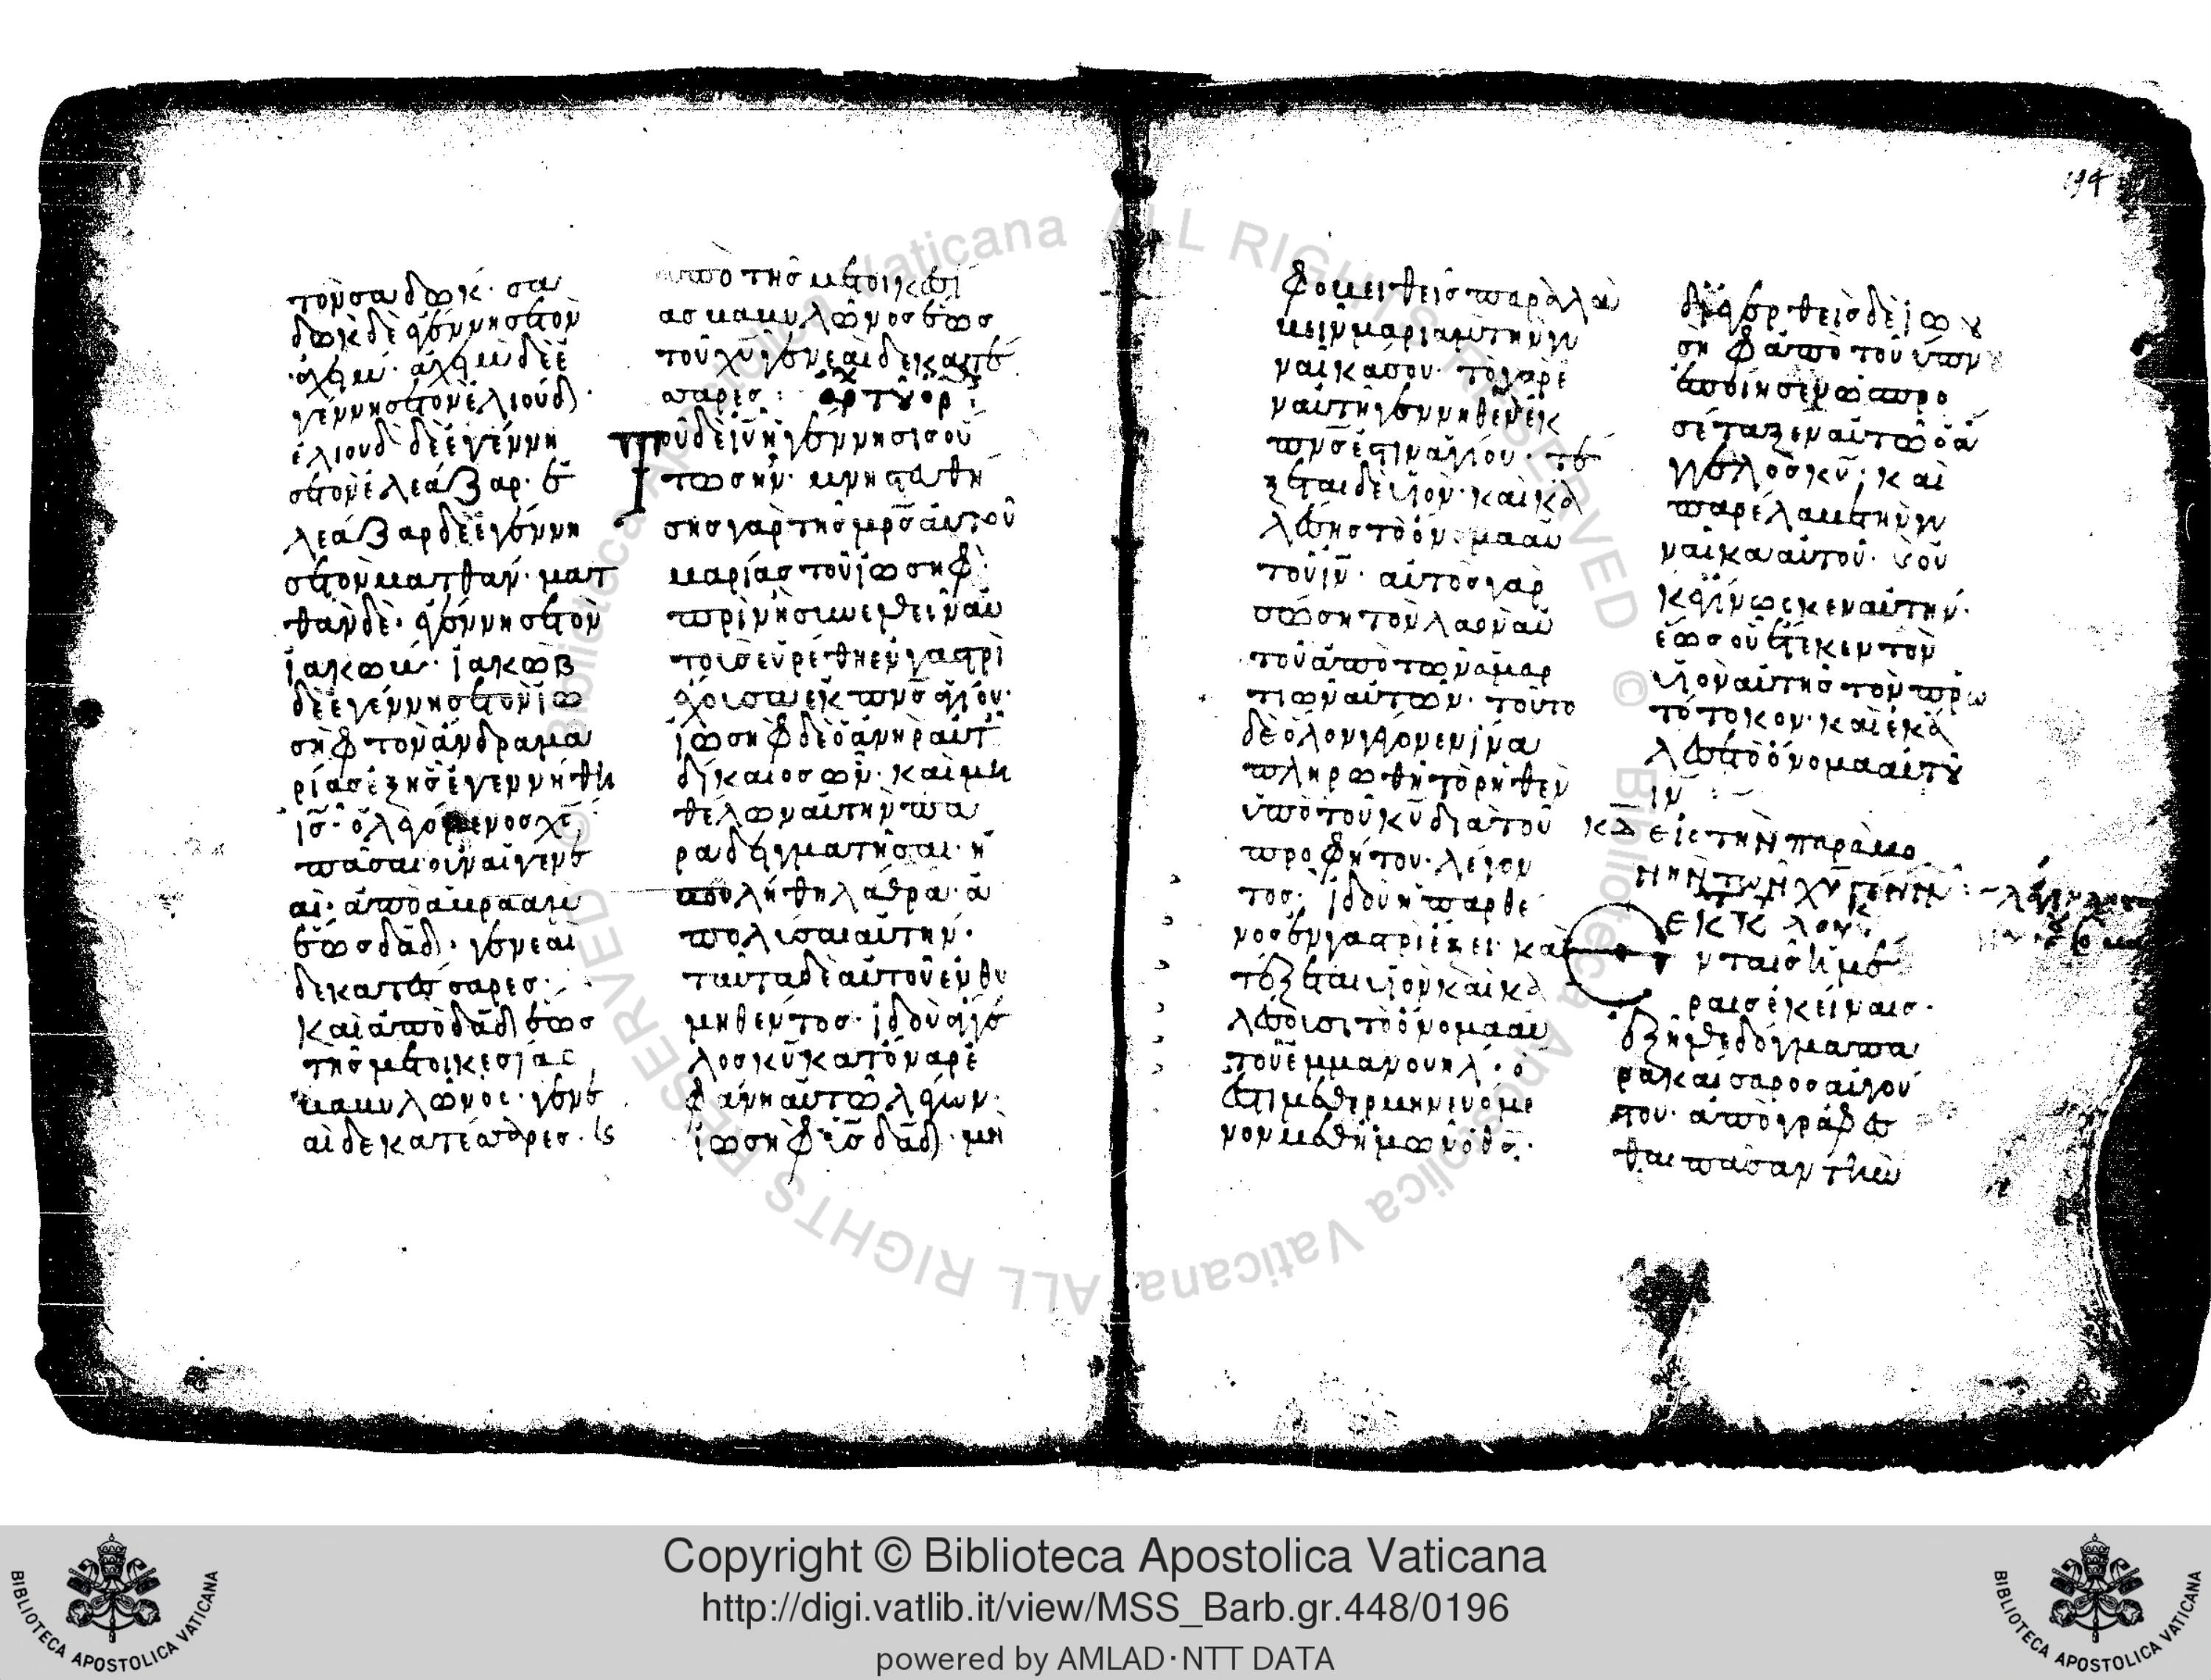 τὸν σαδωκ· σα
δωκ δὲ ἐγέννησε τὸν
ἀχείμ· ἀχεὶμ δὲ ἐ
γέννησε τὸν ἐλιούδ·
ἐλιουδ δὲ ἐγέννη
σε τὸν ἐλεάζαρ· ἐ
λεάζαρ δὲ ἐγέννη
σε τὸν ματθάν· ματ
θὰν δὲ· ἐγέννησε τὸν
ἰακώβ· ἰακὼβ
δὲ ἐγέννησε τὸν ἰω
σὴφ τὸν ἄνδρα μα
ρίας ἐξ ἧς ἐγεννήθη
ις ὁ λεγόμενος χς
πᾶσαι οὖν αἱ γενε
αὶ· ἀπὸ ἀβραὰμ
ἕως δαδ· γενεαὶ
δεκατέσσαρες·
καὶ ἀπὸ δαδ ἕως
τῆς μετοικεσίας
βαβυλῶνος· γενε
αὶ δεκατέσσαρες· κς
ἀπὸ τῆς μετοικεσί
ας βαβυλῶνος ἕως
τοῦ χυ γενεαὶ δεκατέσ
σαρες:
Τοῦ δὲ ιυ ἡ γέννησις οὕ
τως ἦν· μνηστευθεί
σης γὰρ τῆς μρς αὐτοῦ
μαρίας τοῦ ἰωσήφ·
πρὶν ἢ συνελθεῖν αὐ
τοὺς εὑρέθη ἐν γαστρὶ
ἔχουσα ἐκ πνς ἁγίου·
ἰωσὴφ δὲ ὁ ἀνὴρ αὐτ
δίκαιος ὢν· καὶ μὴ
θέλων αὐτὴν πα
ραδειγματῆσαι· ἠ
βουλήθη λάθρα· ἀ
πολῦσαι αὐτήν·
ταῦτα δὲ αὐτοῦ ἐνθυ
μηθέντος· ἰδοὺ ἄγγε
λος κυ κατ' ὄναρ ἐ
φάνη αὐτῶ λέγων·
ἰωσὴφ υς δαδ· μὴ
φοβηθεὶς παραλα
βεῖν μαριὰμ τὴν γυ
ναῖκά σου· τὸ γὰρ ἐ
ν αὐτῆ γεννηθὲν ἐκ
πνς ἐστιν ἁγίου· τέ
ξεται δὲ υἱόν· καὶ κα
λέσης τὸ ὄνομα αὐ
τοῦ ιν· αὐτὸς γὰρ
σώση τὸν λαὸν αὐ
τοῦ ἀπὸ τῶν ἁμαρ
τιῶν αὐτῶν· τοῦτο
δὲ ὅλον γέγονεν ἵνα
πληρωθῆ τὸ ρηθὲν
ὑπὸ τοῦ κυ διὰ τοῦ
προφήτου· λέγον
τος· ἰδοὺ ἡ παρθέ
νος ἐν γαστρὶ ἕξει καὶ
τέξεται υἱὸν καὶ κα
λέσουσι τὸ ὄνομα αὐ
τοῦ ἐμμανουήλ· ὅ
ἐστι μεθερμηνευόμε
νον μεθ' ἡμῶν ὁ θς·
διεγερθεὶς δὲ ἰω
σὴφ ἀπὸ τοῦ ὕπνου
ἐποίησεν ὡς προ
σέταξεν αὐτῶ ὁ ἄγ
γελος κυ; καὶ
παρέλαβε τὴν γυ
ναῖκα αὐτοῦ· κ οὐ
κ ἐγίνωσκεν αὐτήν·
ἕως οὗ ἔτεκεν τὸν
υἱὸν αὐτῆς τὸν πρω
τότοκον· καὶ ἐκά
λεσε τὸ ὄνομα αὐτοῦ
ιν:
κδ εἰς τὴν παραμο
νὴν τῶν χυ γενν:
ΕΚ ΤΚ ΛΟΥΚ
Εν ταῖς ἡμέ
ραις ἐκείναις·
ἐξῆλθε δόγμα πα
ρὰ καίσαρος αὐγού
στου· ἀπογράφε
σθαι πᾶσαν τὴν
194
Copyright © Biblioteca Apostolica Vaticana
http://digi.vatlib.it/view/MSS_Barb.gr.448/0196
powered by AMLAD·NTT DATA
BIBLIOTECA APOSTOLICA VATICANA
BIBLIOTECA APOSTOLICA VATICANA